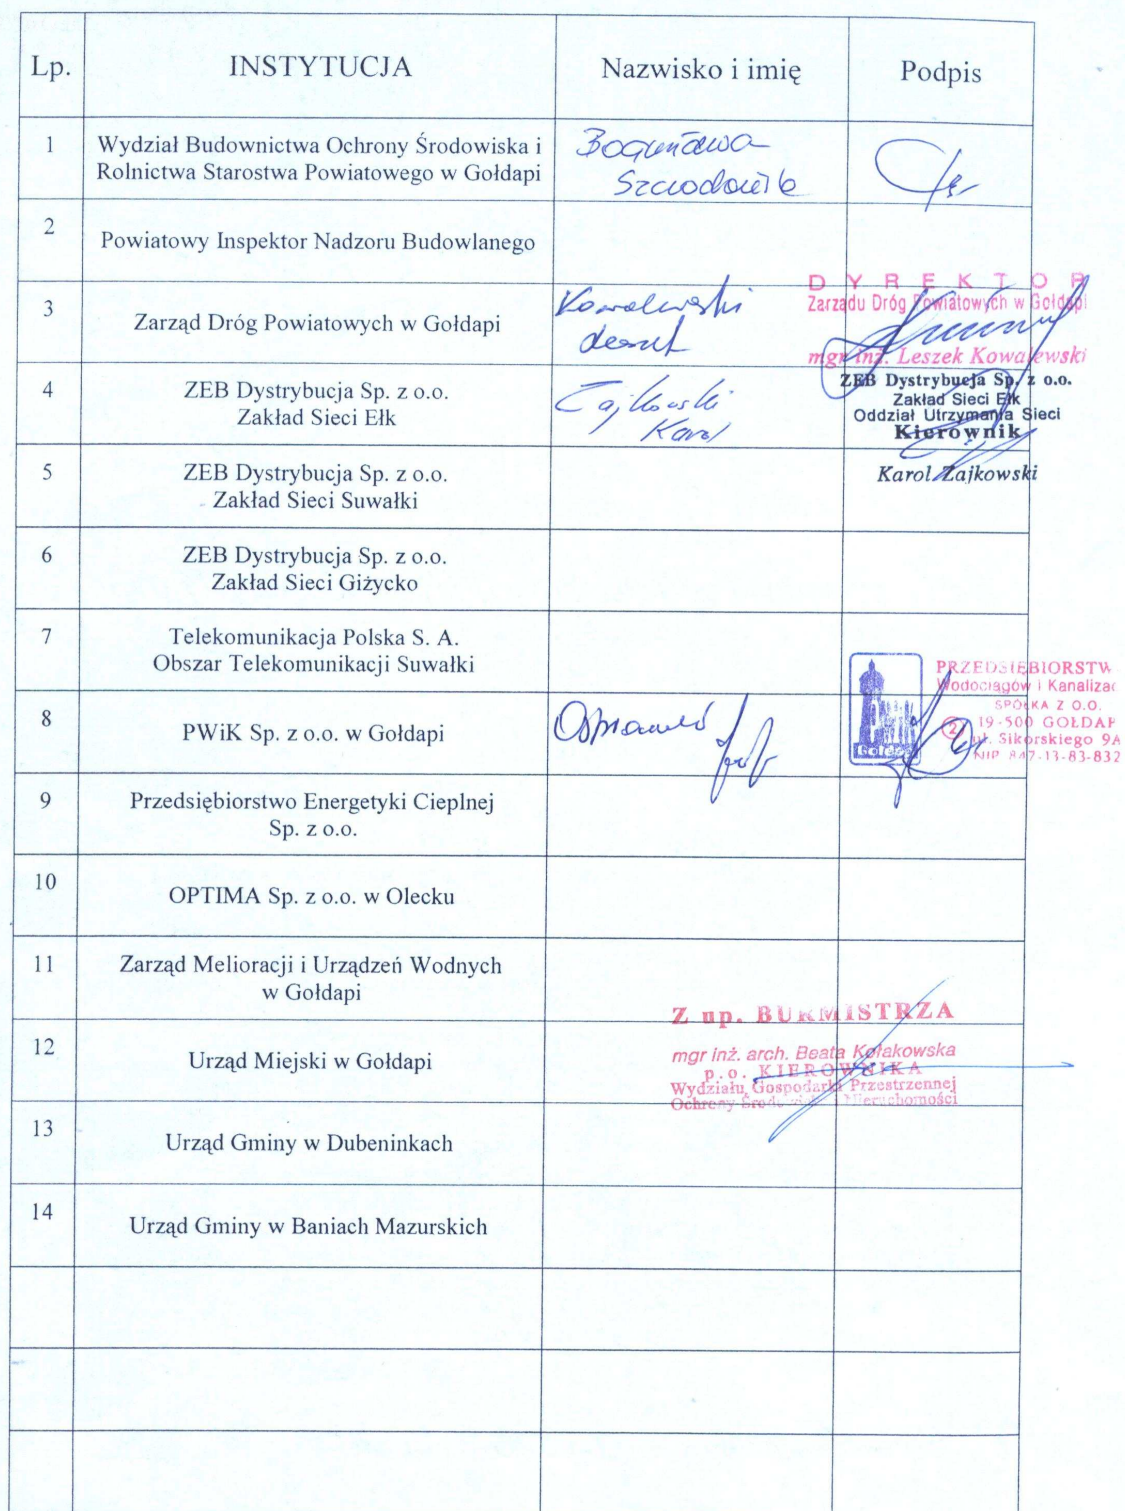 Lp. INSTYTUCJA Nazwisko i imię Podpis
1 Wydział Budownictwa Ochrony Środowiska i
Rolnictwa Starostwa Powiatowego w Gołdapi
2 Powiatowy Inspektor Nadzoru Budowlanego
3 Zarząd Dróg Powiatowych w Gołdapi
Kowalewski
Leszek
DYREKTOR
Zarządu Dróg Powiatowych w Gołdapi
mgr inż. Leszek Kowalewski
4 ZEB Dystrybucja Sp. z o.o.
Zakład Sieci Ełk
Zajkowski
Karol
ZEB Dystrybucja Sp. z o.o.
Zakład Sieci Ełk
Oddział Utrzymania Sieci
Kierownik
Karol Zajkowski
5 ZEB Dystrybucja Sp. z o.o.
Zakład Sieci Suwałki
6 ZEB Dystrybucja Sp. z o.o.
Zakład Sieci Giżycko
7 Telekomunikacja Polska S. A.
Obszar Telekomunikacji Suwałki
8 PWiK Sp. z o.o. w Gołdapi
PWiK
Gołdap
PRZEDSIĘBIORSTW
Wodociągów i Kanalizac
SPÓŁKA Z O.O.
2 19-500 GOŁDAP
ul. Sikorskiego 9A
NIP 847-13-83-832
9 Przedsiębiorstwo Energetyki Cieplnej
Sp. z o.o.
10 OPTIMA Sp. z o.o. w Olecku
11 Zarząd Melioracji i Urządzeń Wodnych
w Gołdapi
12 Urząd Miejski w Gołdapi
Z up. BURMISTRZA
mgr inż. arch. Beata Kołakowska
p.o. KIEROWNIKA
Wydziału Gospodarki Przestrzennej
Ochrony Środowiska i Nieruchomości
13 Urząd Gminy w Dubeninkach
14 Urząd Gminy w Baniach Mazurskich